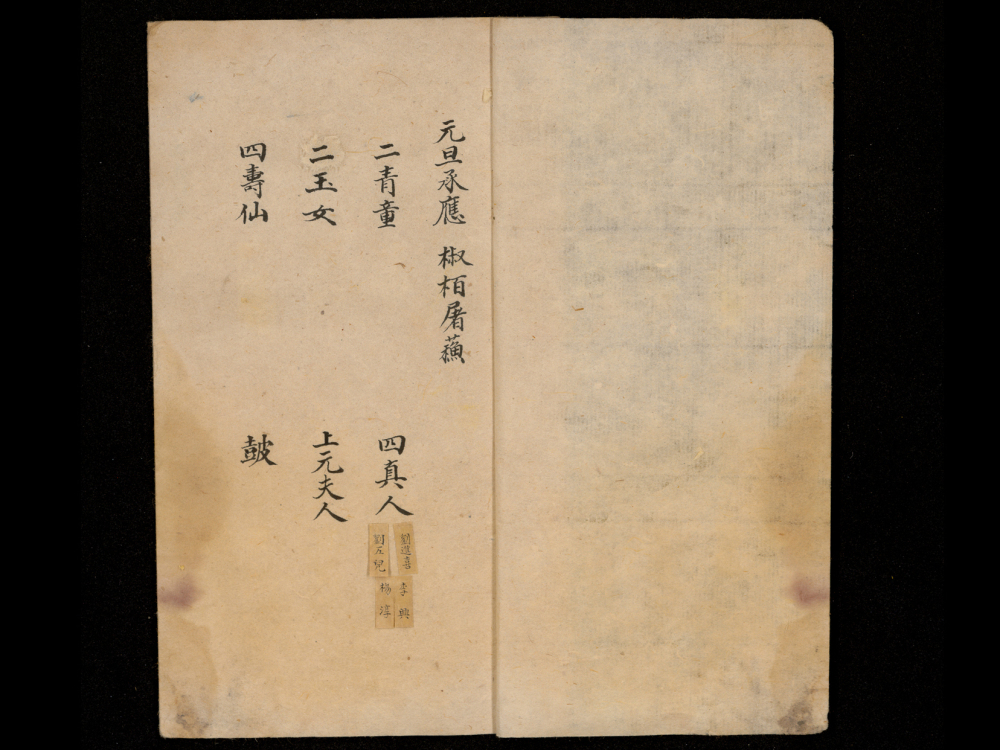 元旦承應 椒栢屠蘓
二青童 四真人
劉進喜 李興
劉五兒 楊淳
二玉女 上元夫人
四壽仙 皷